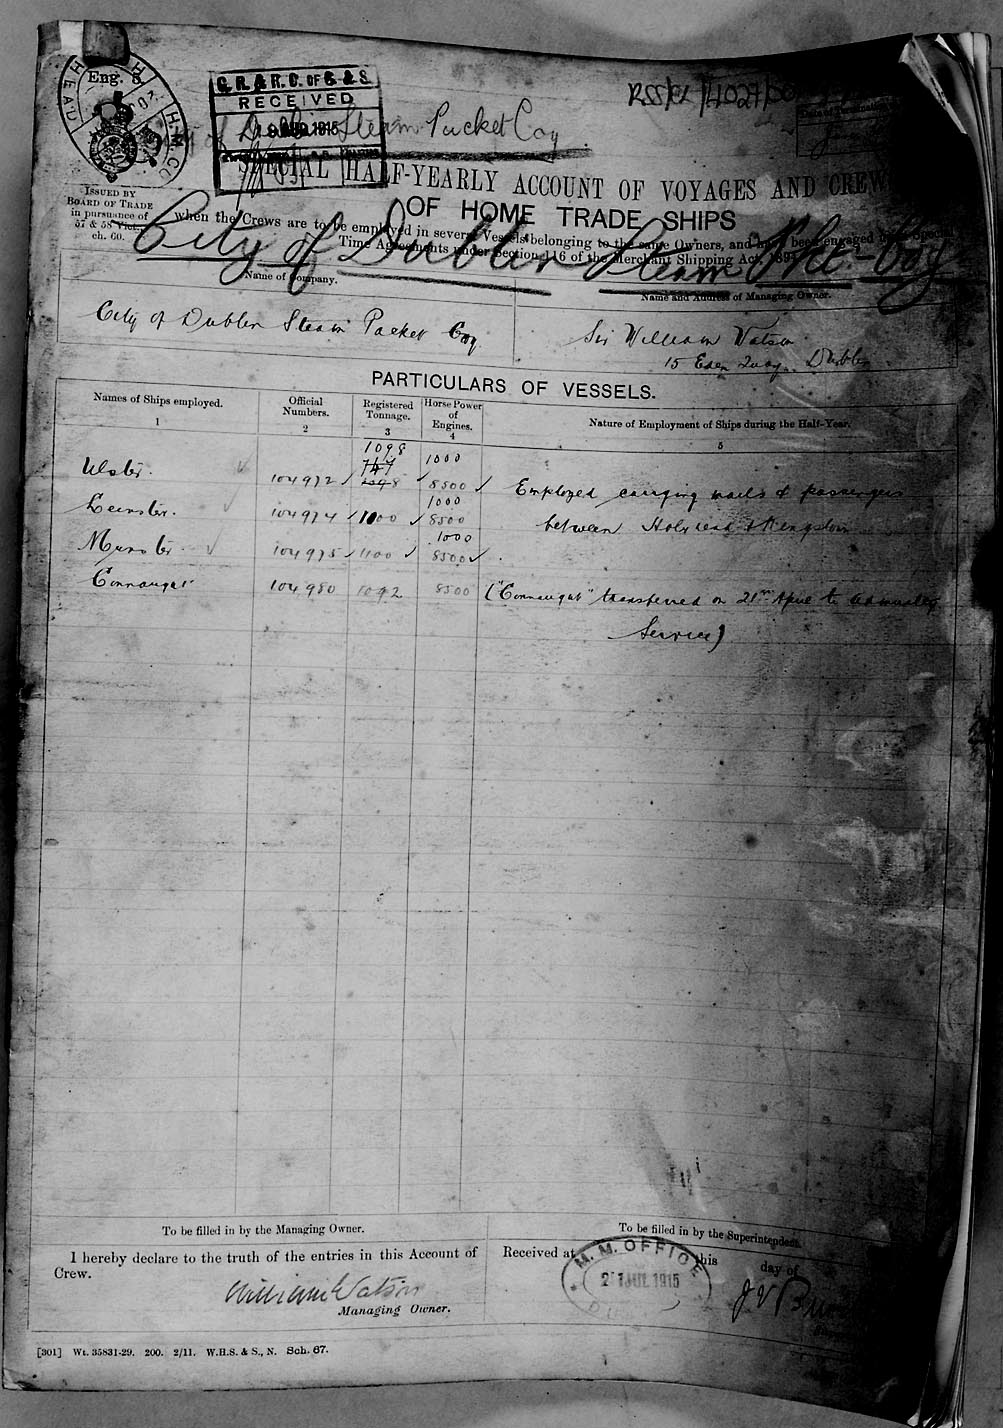 Eng. 3.
C.R. & R.C. OF S. & S.
RECEIVED
1915
of Dublin Steam Packet Coy
SPECIAL HALF-YEARLY ACCOUNT OF VOYAGES AND CREW
OF HOME TRADE SHIPS
ISSUED BY
BOARD OF TRADE
in pursuance of
57 & 58 Vict.
ch. 60.
when the Crews are to be employed in several Vessels belonging to the same Owners, and have been engaged
Time Agreements under Section 116 of the Merchant Shipping Act, 1894
City of Dublin Steam Pkt. Coy
Name of Company.
Name and Address of Managing Owner.
City of Dublin Steam Packet Coy
Sir William Watson
15 Eden Quay Dublin
PARTICULARS OF VESSELS.
Names of Ships employed.
Official Numbers.
Registered Tonnage.
Horse Power of Engines.
Nature of Employment of Ships during the Half-Year.
1 2 3 4 5
1098 1000
747
Ulster. 104972 8500 Employed carrying mails & passengers
1000
Leinster. 104974 1100 8500 between Holyhead & Kingstown
1000
Munster 104975 1100 8500
Connaught 104980 1092 8500 ("Connaught" transferred on 21st April to Admiralty
Service)
To be filled in by the Managing Owner.
I hereby declare to the truth of the entries in this Account of
Crew.
William Watson
Managing Owner.
To be filled in by the Superintendent.
Received at this day of
M.M. OFFICE
JUL 1915
[301] Wt. 35831-29. 200. 2/11. W.H.S. & S., N. Sch. 67.